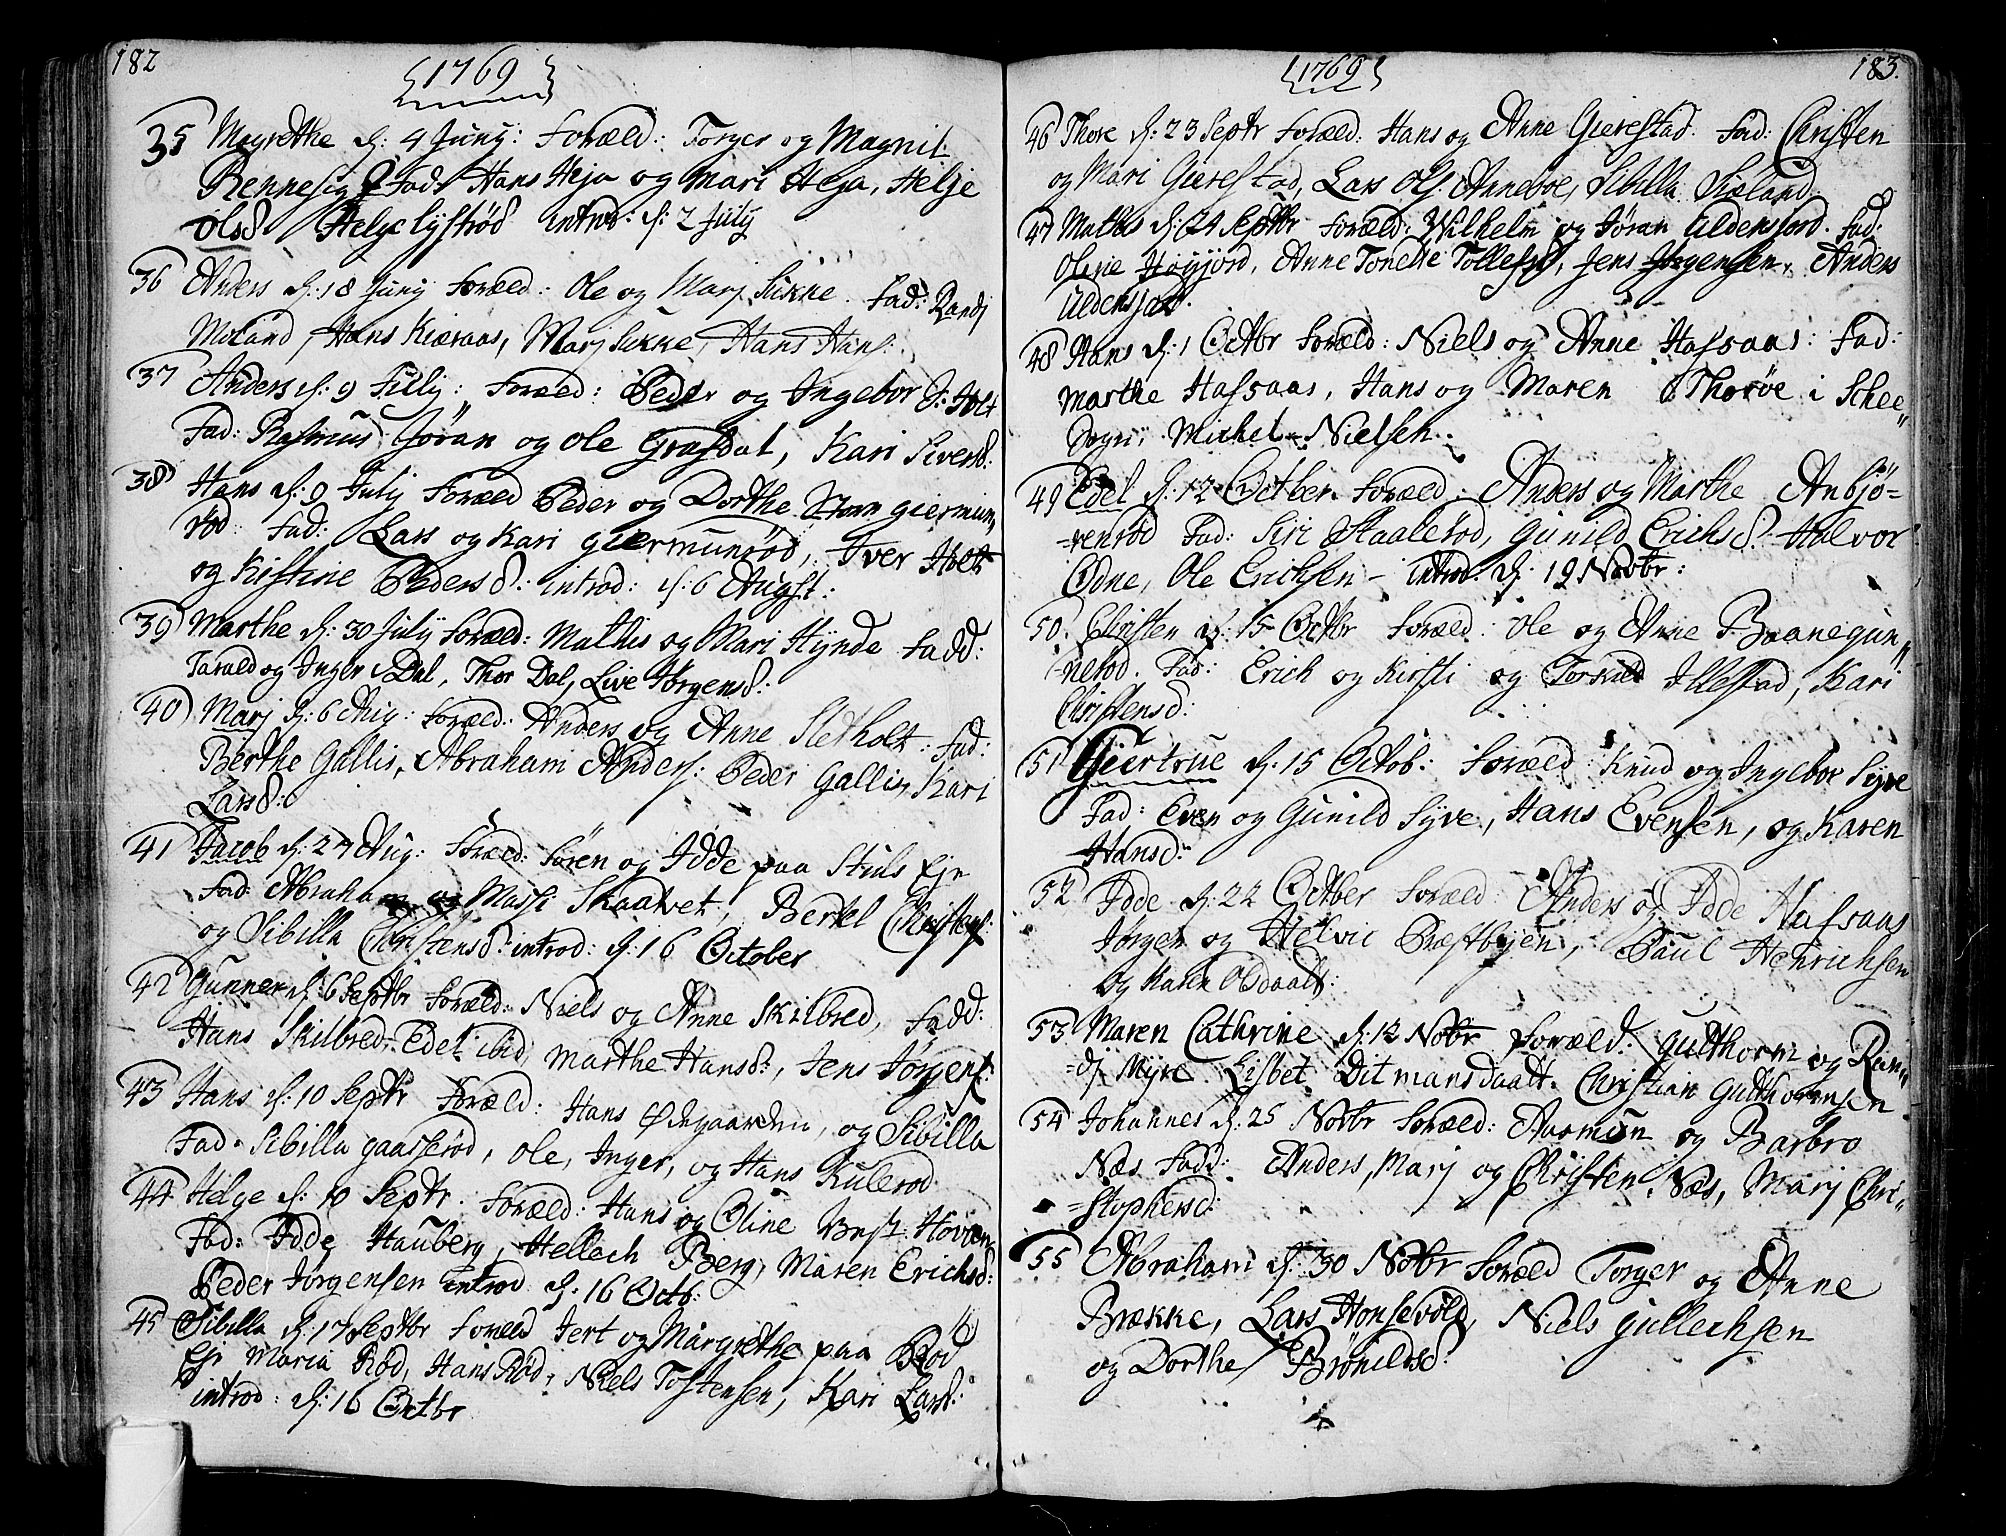 182
1769
35 Magrethe d: 4 Juny: Foræld: Torger og Magnil
Rennesig Fad: Hans Heja og Mari Heja, Helje
Olsd Helje lystrød introd: d: 2 July
36 Anders d: 18 Juny Foræld: Ole og Marj Sukke. Fad: Randj
Moland, Hans Kiæraas, Marj Sukke, Hans Hans:
37 Anders d: 9 July: Foræld: Peder og Ingebor J: Holt
Fad: Rasmus Jøran og Ole Grafdal, Kari Siversd:
38 Hans d: 9 July Foræld Peder og Dorthe giermun
rød Fad: Lars og Kari giermunrød, Iver Holt
og Kistine Pedersd: introd: d: 6 Augst:
39 Marthe d: 30 July Foræld: Mathis og Mari Hynde Fadd:
Tarald og Inger Dal, Thor Dal, Live Jørgensd:
40 Marj d: 6 Aug: Foræld: Anders og Anne Sletholt: Fad:
Berthe Gallis, Abraham Anders: Peder Gallis, Kari
Larsd:
41 Jacob d: 27 Aug: Foræld: Søren og Idde paa Stuls Eje
Fad: Abraham og Massi Skaatvet, Bertel Christens:
og Sibilla Christensd: introd: d: 16 October
42 Gunner d: 6 Septbr Foræld: Niels og Anne Skilbred, Fadd:
Hans Skilbred, Edel ibid, Marthe Hansd:, Jens Jørgens:
43 Hans d: 10 Septr Foræld: Hans Ødegaarden, og Sibilla
Fad: Sibilla gaasserød, Ole, Inger, og Hans Kulerød
44 Helge d: 10 Septr. Foræld: Hans og Oline Høven
Fad: Idde Hauberg, Hellech Berg, Maren Erichsd:
Peder Jørgensen introd d: 16 Octb:
45 Sibilla d: 17 Septbr Foræld Jert og Margrethe paa Rød
Eje Maria Rød, Hans Rød, Niels Tostensen, Kari Larsd:
introd: d: 16 Octbr
183.
1769
46 Thore d: 23 Septr Foræld: Hans og Anne Gierestad. Fad: Christen
og Mari Gierestad, Lars Ols: Annerøe, Sibilla Siøland.
47 Mathis d: 24 Septbr Foræld: Wilhelm og Jøran Uldensjord. Fad:
Olene Høyjord, Anne Tonette Tollefsd, Jens Jørgensen, Anders
Uldensjor.
48 Hans d: 1 Octbr Foræld: Niels og Anne Hafsaas: Fad:
Marthe Hafsaas, Hans og Maren Thorøe i Schee„
Sogn, Michel Nielsen.
49 Edel d: 12 Octber Foræld: Anders og Marthe Anbjø=
=renrød Fad: Siri Skaalerød, Gunild Erichsd: Halvor
Odne, Ole Erichsen – introd: d: 19 Novbr:
50. Christen d: 15 Octbr Foræld: Ole og Anne Baanegun„
=nerød. Fad: Erich og Kirsti og Torkild Illestad, Kari
Christensd:
51 Giertrue d: 15 Octob: Foræld: Knud og Ingebor Syve
Fad: Even og Gunild Syve, Hans Evensen, og Karen
Hansd:
52 Idde d: 22 Octber Foræld: Anders og Idde Hafsaas
Jørgen og Helvic Præstbyen, Paul Henrichsen
og Karen Olsdaatt:
53 Maren Cathrine d: 12 Novbr Foræld: Gulthorm og Ran„
=dj Myre. Lisbet Ditmansdaatt. Christian Gulthormsen
54 Johannes d: 25 Novbr Foræld: Aasmun og Barbro
Næs Fadd: Anders, Marj og Christen Næs, Marj Chri„
=stophersd:
55 Abraham d: 30 Novbr Foræld Torger og Anne
Brække, Lars Honsevold, Niels Gullechsen
og Dorthe Brønildsd: